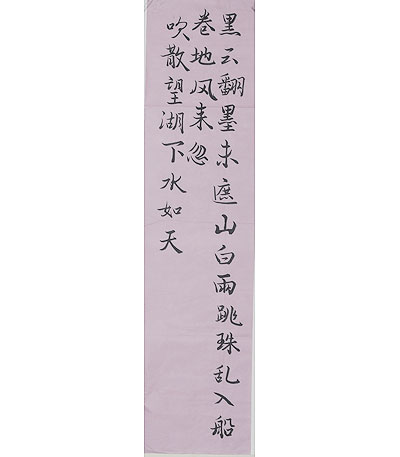 黑云翻墨未遮山白雨跳珠乱入船
卷地风来忽
吹散望湖下水如天